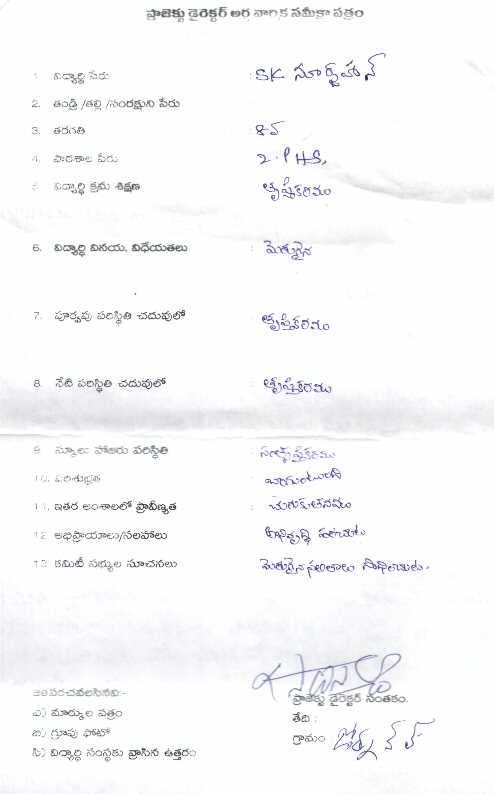 ప్రాజెక్టు డైరెక్టర్ అర్థ వార్షిక సమీక్షా పత్రం
1. విద్యార్థి పేరు : SK నూర్జహాన్
2. తండ్రి /తల్లి /సంరక్షుని పేరు
3. తరగతి : 8వ
4. పాఠశాల పేరు : Z.P HS,
5. విద్యార్థి క్రమ శిక్షణ : తృప్తికరము
6. విద్యార్థి వినయ, విధేయతలు : మెరుగైన
7. పూర్వపు పరిస్థితి చదువులో : తృప్తికరము
8. నేటి పరిస్థితి చదువులో : తృప్తికరము
9. స్కూలు హాజరు పరిస్థితి : సంతృప్తికరము
10. పరిశుభ్రత : బాగుంటుంది
11. ఇతర అంశాలలో ప్రావీణ్యత : చురుకుతనము
12. అభిప్రాయాలు/సలహాలు : అభివృద్ధి పరచుట
13. కమిటీ సభ్యుల సూచనలు : మెరుగైన ఫలితాలు సాధించుట.
జతపరచవలసినవి:-
ఎ) మార్కుల పత్రం
బి) గ్రూపు ఫోటో
సి) విద్యార్థి సంస్థకు వ్రాసిన ఉత్తరం
ప్రాజెక్టు డైరెక్టర్ సంతకం.
తేది :
గ్రామం :